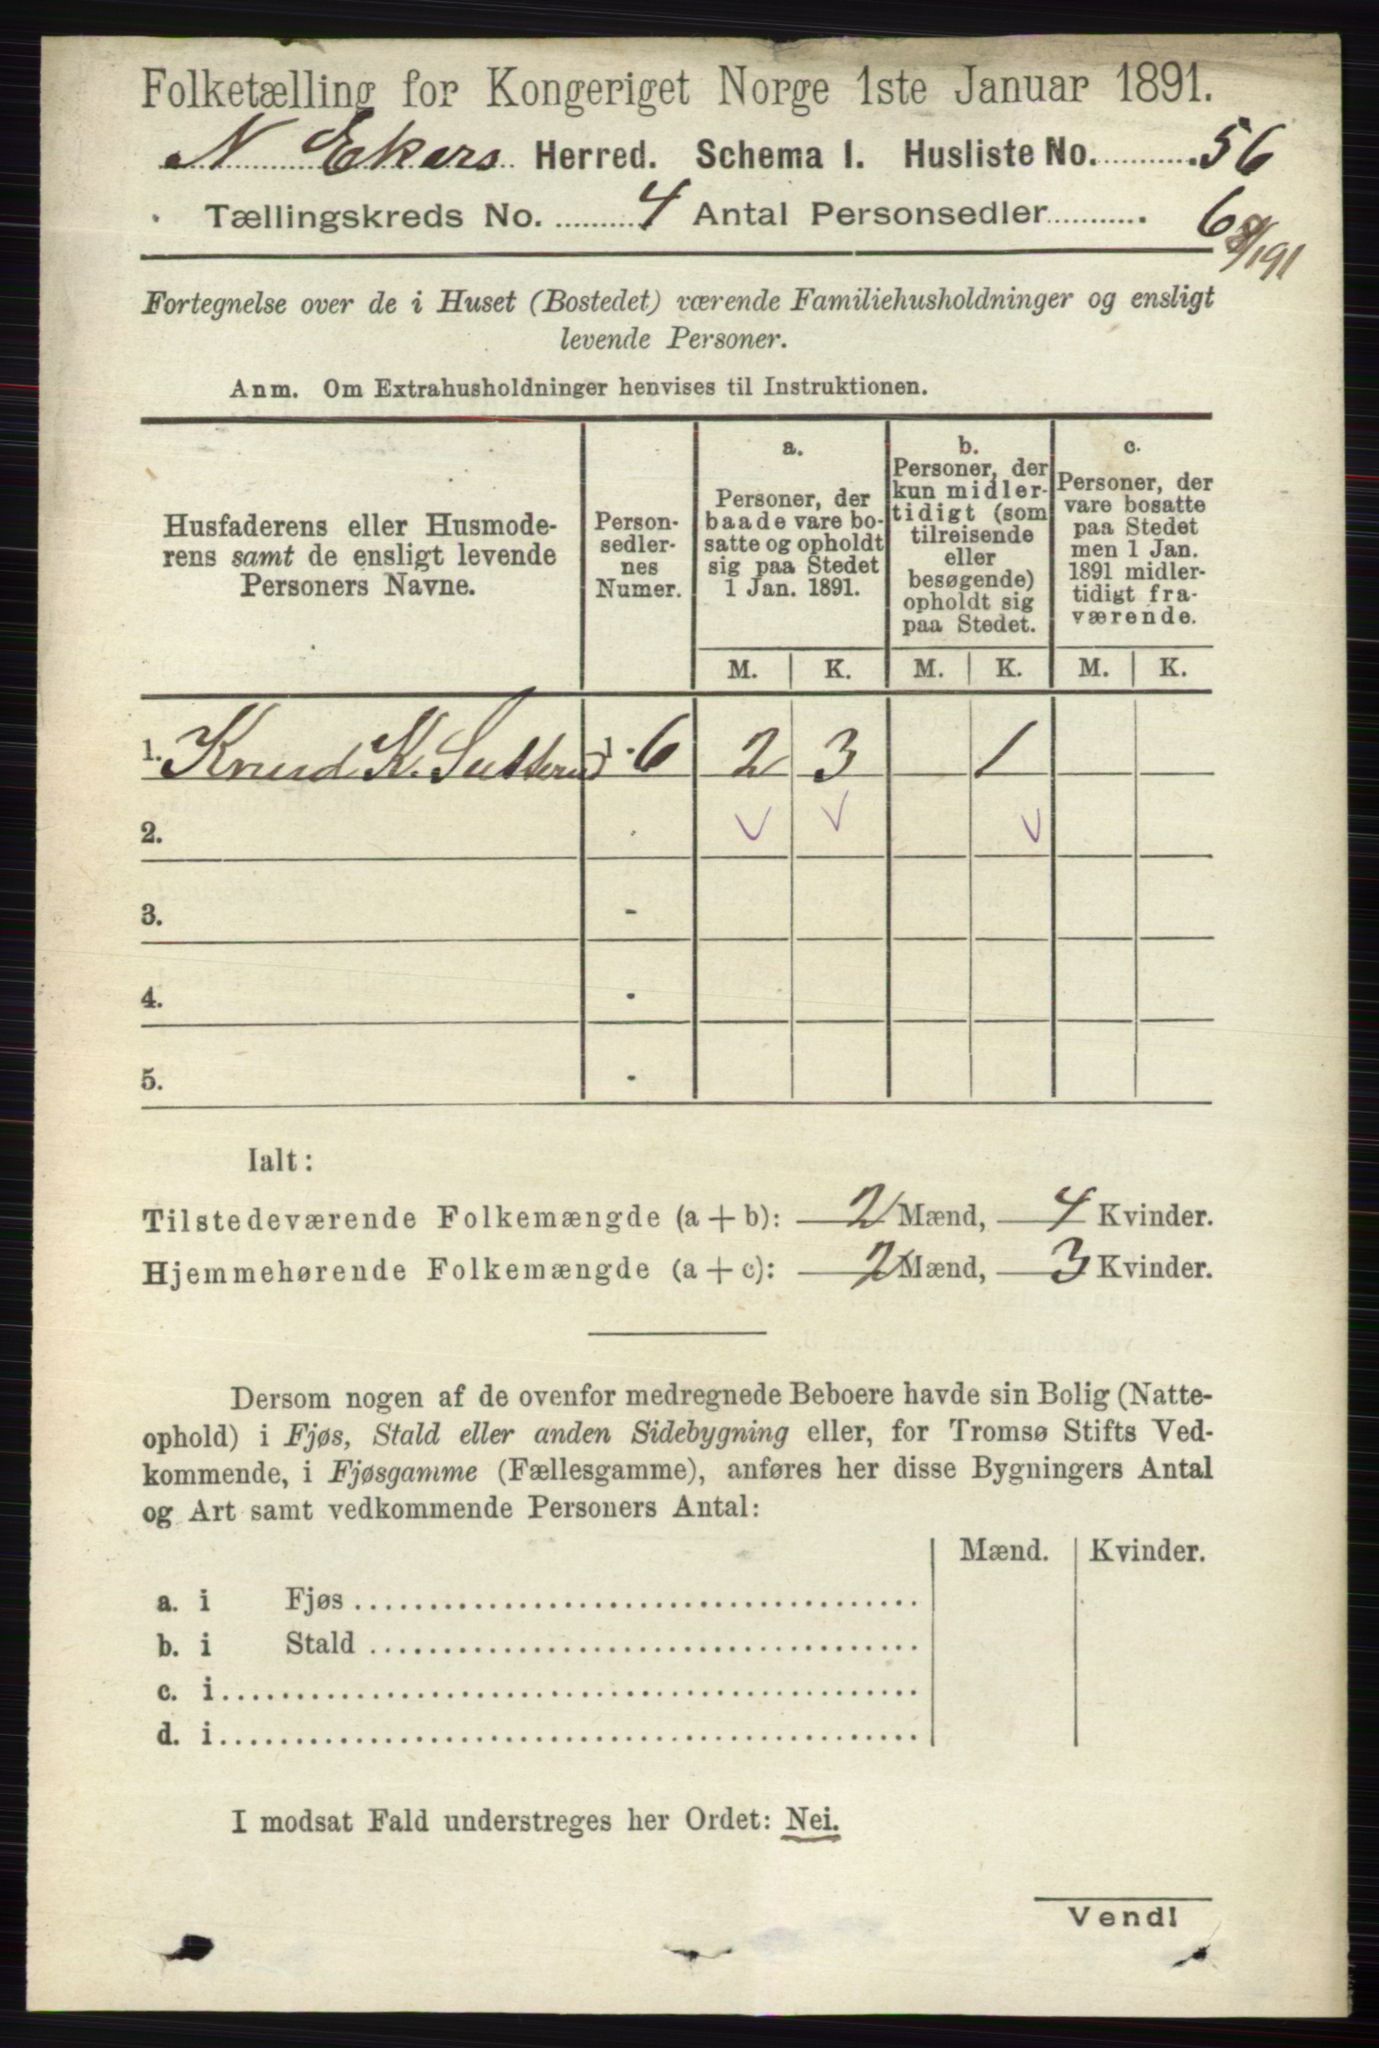 Folketælling for Kongeriget Norge 1ste Januar 1891.
N Ekers Herred. Schema I. Husliste No. 56
Tællingskreds No. 4 Antal Personsedler 6
Fortegnelse over de i Huset (Bostedet) værende Familiehusholdninger og ensligt
levende Personer.
Anm. Om Extrahusholdninger henvises til Instruktionen.
Husfaderens eller Husmode-
rens samt de ensligt levende
Personers Navne.
Person-
sedler-
nes
Numer.
a.
Personer, der
baade vare bo-
satte og opholdt
sig paa Stedet
1 Jan. 1891.
b.
Personer, der
kun midler-
tidigt (som
tilreisende
eller
besøgende)
opholdt sig
paa Stedet.
c.
Personer, der
vare bosatte
paa Stedet
men 1 Jan.
1891 midler-
tidigt fra-
værende.
M. K. M. K. M. K.
1. Knud K. 1-6 2 3 1
2.
3. -
4. -
5. -
Ialt:
Tilstedeværende Folkemængde (a + b): 2 Mænd, 4 Kvinder.
Hjemmehørende Folkemængde (a + c): 2 Mænd, 3 Kvinder.
Dersom nogen af de ovenfor medregnede Beboere havde sin Bolig (Natte-
ophold) i Fjøs, Stald eller anden Sidebygning eller, for Tromsø Stifts Ved-
kommende, i Fjøsgamme (Fællesgamme), anføres her disse Bygningers Antal
og Art samt vedkommende Personers Antal:
Mænd. Kvinder.
a. i Fjøs
b. i Stald
c. i
d. i
I modsat Fald understreges her Ordet: Nei.
Vend!